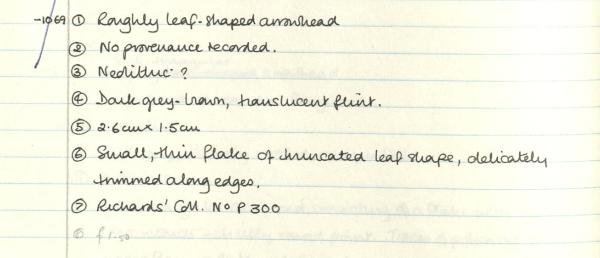 -1069 ① Roughly leaf-shaped arrowhead
② No provenance recorded.
③ Neolithic ?
④ Dark grey-brown, translucent flint.
⑤ 2.6cm x 1.5cm
⑥ Small, thin flake of truncated leaf shape, delicately
trimmed along edges.
⑦ Richards' Coll. No P 300
⑧ £1.50